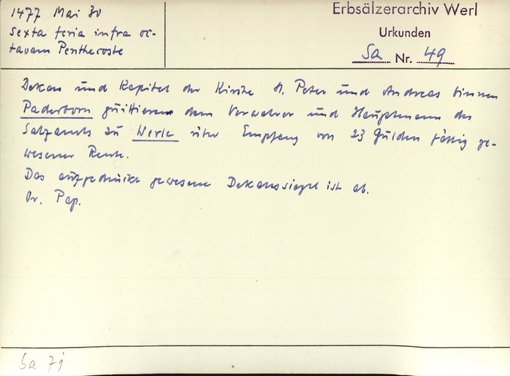 1477 Mai 30
sexta feria infra oc-
tavam Penthecoste
Erbsälzerarchiv Werl
Urkunden
Sa Nr. 49
Dekan und Kapitel der Kirche St. Peter und Andreas binnen
Paderborn quittieren dem Verwahrer und Hauptmann des
Salzamts zu Werle über Empfang von 23 Gulden fällig ge-
wesener Rente.
Das aufgedrückt gewesene Dekanssiegel ist ab.
Or. Pap.
Sa 71